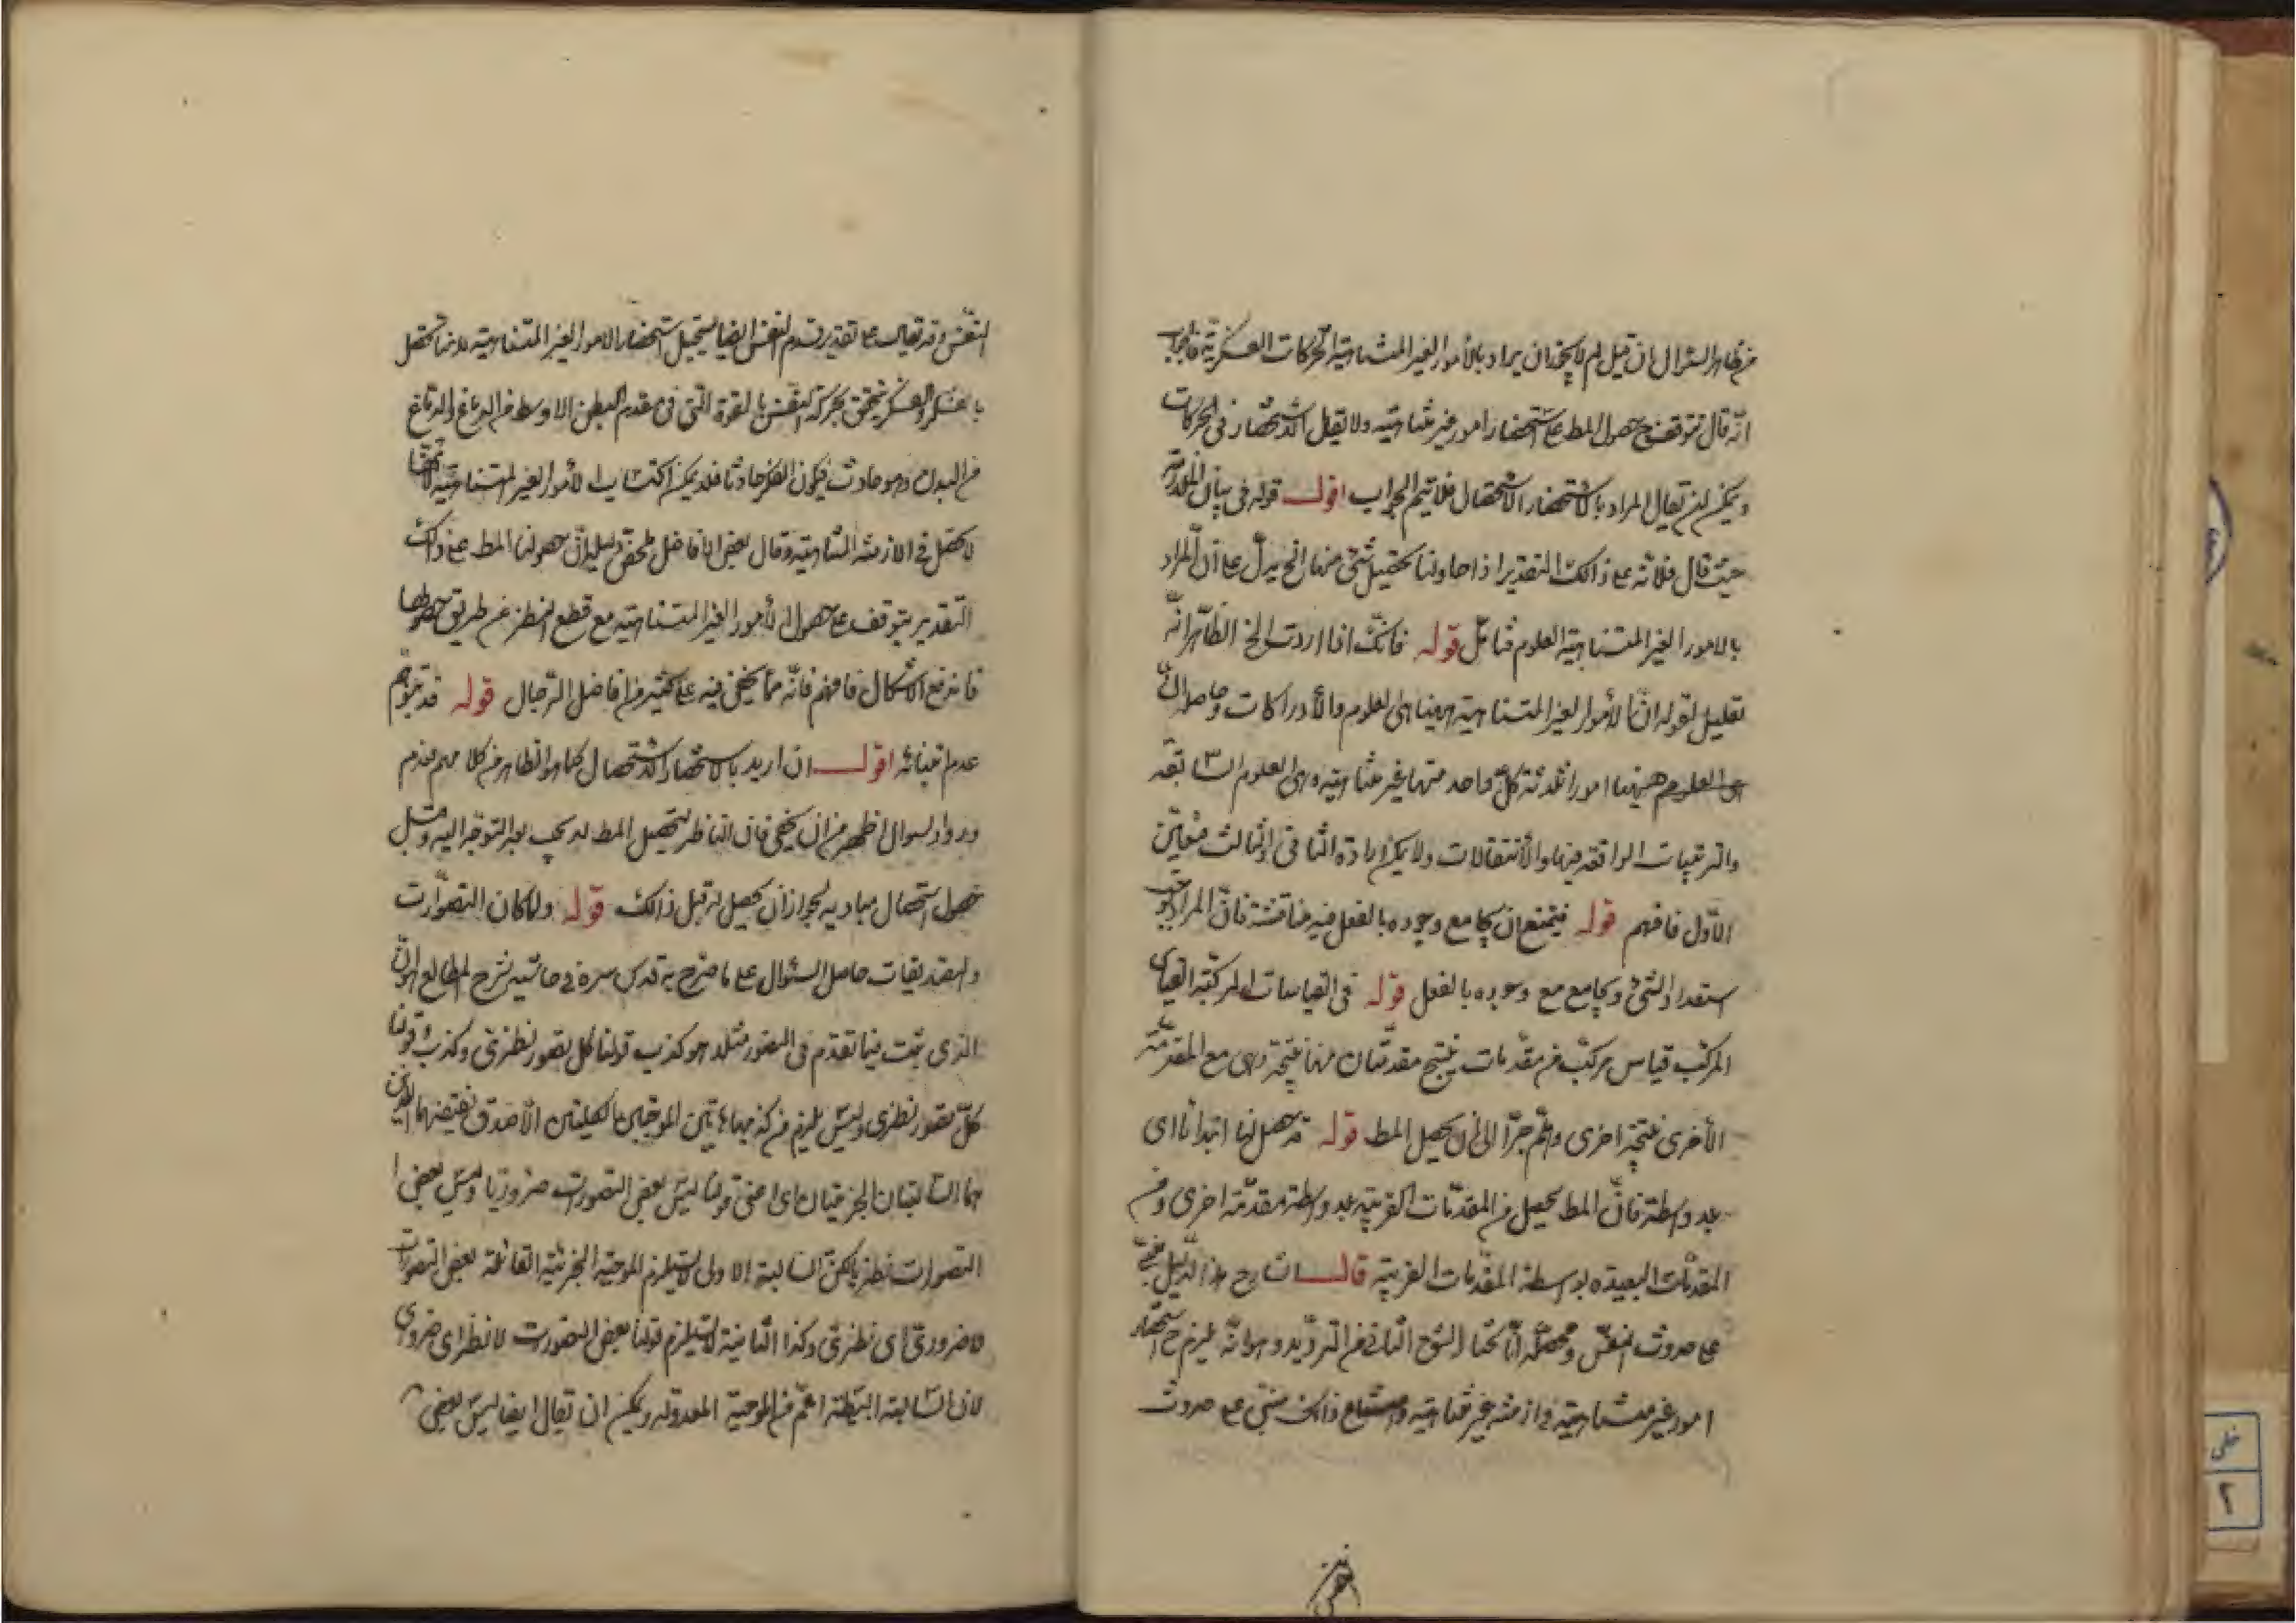 من ظاهر السئوال ان قيل لم لا يجوز ان يراد بالأمور الغير المتناهية الحركات الفكرية فاجاب
انّه قال يتوقف ح حصول المط على استحضار امور غير متناهية ولا يقال الاستحضار فى الحركات
ويمكن ان يقال المراد بالاستحضار الاستحصال فلا يتم الجواب اقول قوله فى بيان الملازمة
حيث قال فلانّه على ذالك التقدير اذا حاولنا تحصيل شئ منها الخ يدلّ على انّ المراد
بالامور الغير المتناهية العلوم فتامّل قوله فانّك اذا اردت الخ الظاهر انّه
تعليل لقوله انّ الأمور الغير المتناهية ههنا هى العلوم والأدراكات وحاصله انّ
ههنا امورا ثلاثة كلّ واحد منها غير متناهية وهى العلوم السابقة
والترتيبات الواقعة فيها والأنتقالات ولا يمكن ارادة الثانى والثالث فتعيّن
الاوّل فافهم قوله فيمتنع ان يجامع وجوده بالفعل فيه مناقشة فانّ المراد
استعداد الشئ ويجامع مع وجوده بالفعل قوله فى القياسات المركّبة القياس
المركّب قياس مركّب من مقدّمات ينتج مقدّمتان منها نتيجة وهى مع المقدّمة
الأخرى نتيجة اخرى وهلمّ جرّا الى ان يحصل المط قوله قد حصل لها ابتداءا اى
بلا واسطة فانّ المط يحصل من المقدّمات القريبة بلا واسطة مقدّمة اخرى ومن
المقدّمات البعيدة بواسطة المقدّمات القريبة قال الشارح هذا الدّليل
على حدوث النفس ومحصّله انّا نختار الشق الثانى من الترديد وهو انّه يلزم ح استحضار
امور غير متناهية فى ازمنة غير متناهية وامتناع ذالك مبنىّ على حدوث
النفس
النّفس وقد يقال على تقدير قدم النفس ايضا يستحيل استحضار الامور الغير المتناهية لانها تحصل
بالفكر والفكر يتحقق بحركة النفس بالقوة التى فى مقدم البطن الاوسط من الدماغ والدماغ
من البدن وهو حادث فيكون الفكر حادثا فلا يمكن اكتساب الأمور الغير المتناهية
لا تحصل فى الازمنة المتناهية وقال بعض الافاضل حصولنا المط على ذالك
التقدير يتوقف على حصول الأمور الغير المتناهية مع قطع النظر عن طريق حصولها
فاندفع الاشكال فافهم فانّه ممّا يخفى فيه على كثير من افاضل الرّجال قوله قد يتوهّم
عدم تناهيه اقول ان اريد بالاستحضار الاستحصال كما هو الظاهر من كلامهم فعدم
ورود السوال اظهر من ان يخفى فان الناظر لتحصيل المط لا يجب بعد التوجّه اليه وقبل
حصوله استحصال مباديه لجواز ان يحصل له قبل ذالك قوله ولما كان التصوّرات
والتصديقات حاصل السئوال على ما صرّح به قدس سره فى حاشيه شرح المطالع هو انّ
الذى ثبت فيما تقدّم فى التصور مثلا هو كذب قولنا كل تصور نظرى وكذب قولنا
كلّ تصور نظرى وليس يلزم من كذبهما هاتين الموجبتين الكليتين الّا صدق نقيضيهما اللذين
هما السالبتان الجزئيتان اى اعنى قولنا ليس بعض التصورات ضروريا وليس بعض
التصورات نظريا لكن السالبة الاولى لا يستلزم الموجبة الجزئية القائلة بعض التصورات
لا ضرورى اى نظرى وكذا الثانية لا يستلزم قولنا بعض التصورت لا نظرى اى ضرورى
لان السالبة البسيطة اعمّ من الموجبة المعدولة ويمكن ان يقال ايضا ليس بعض